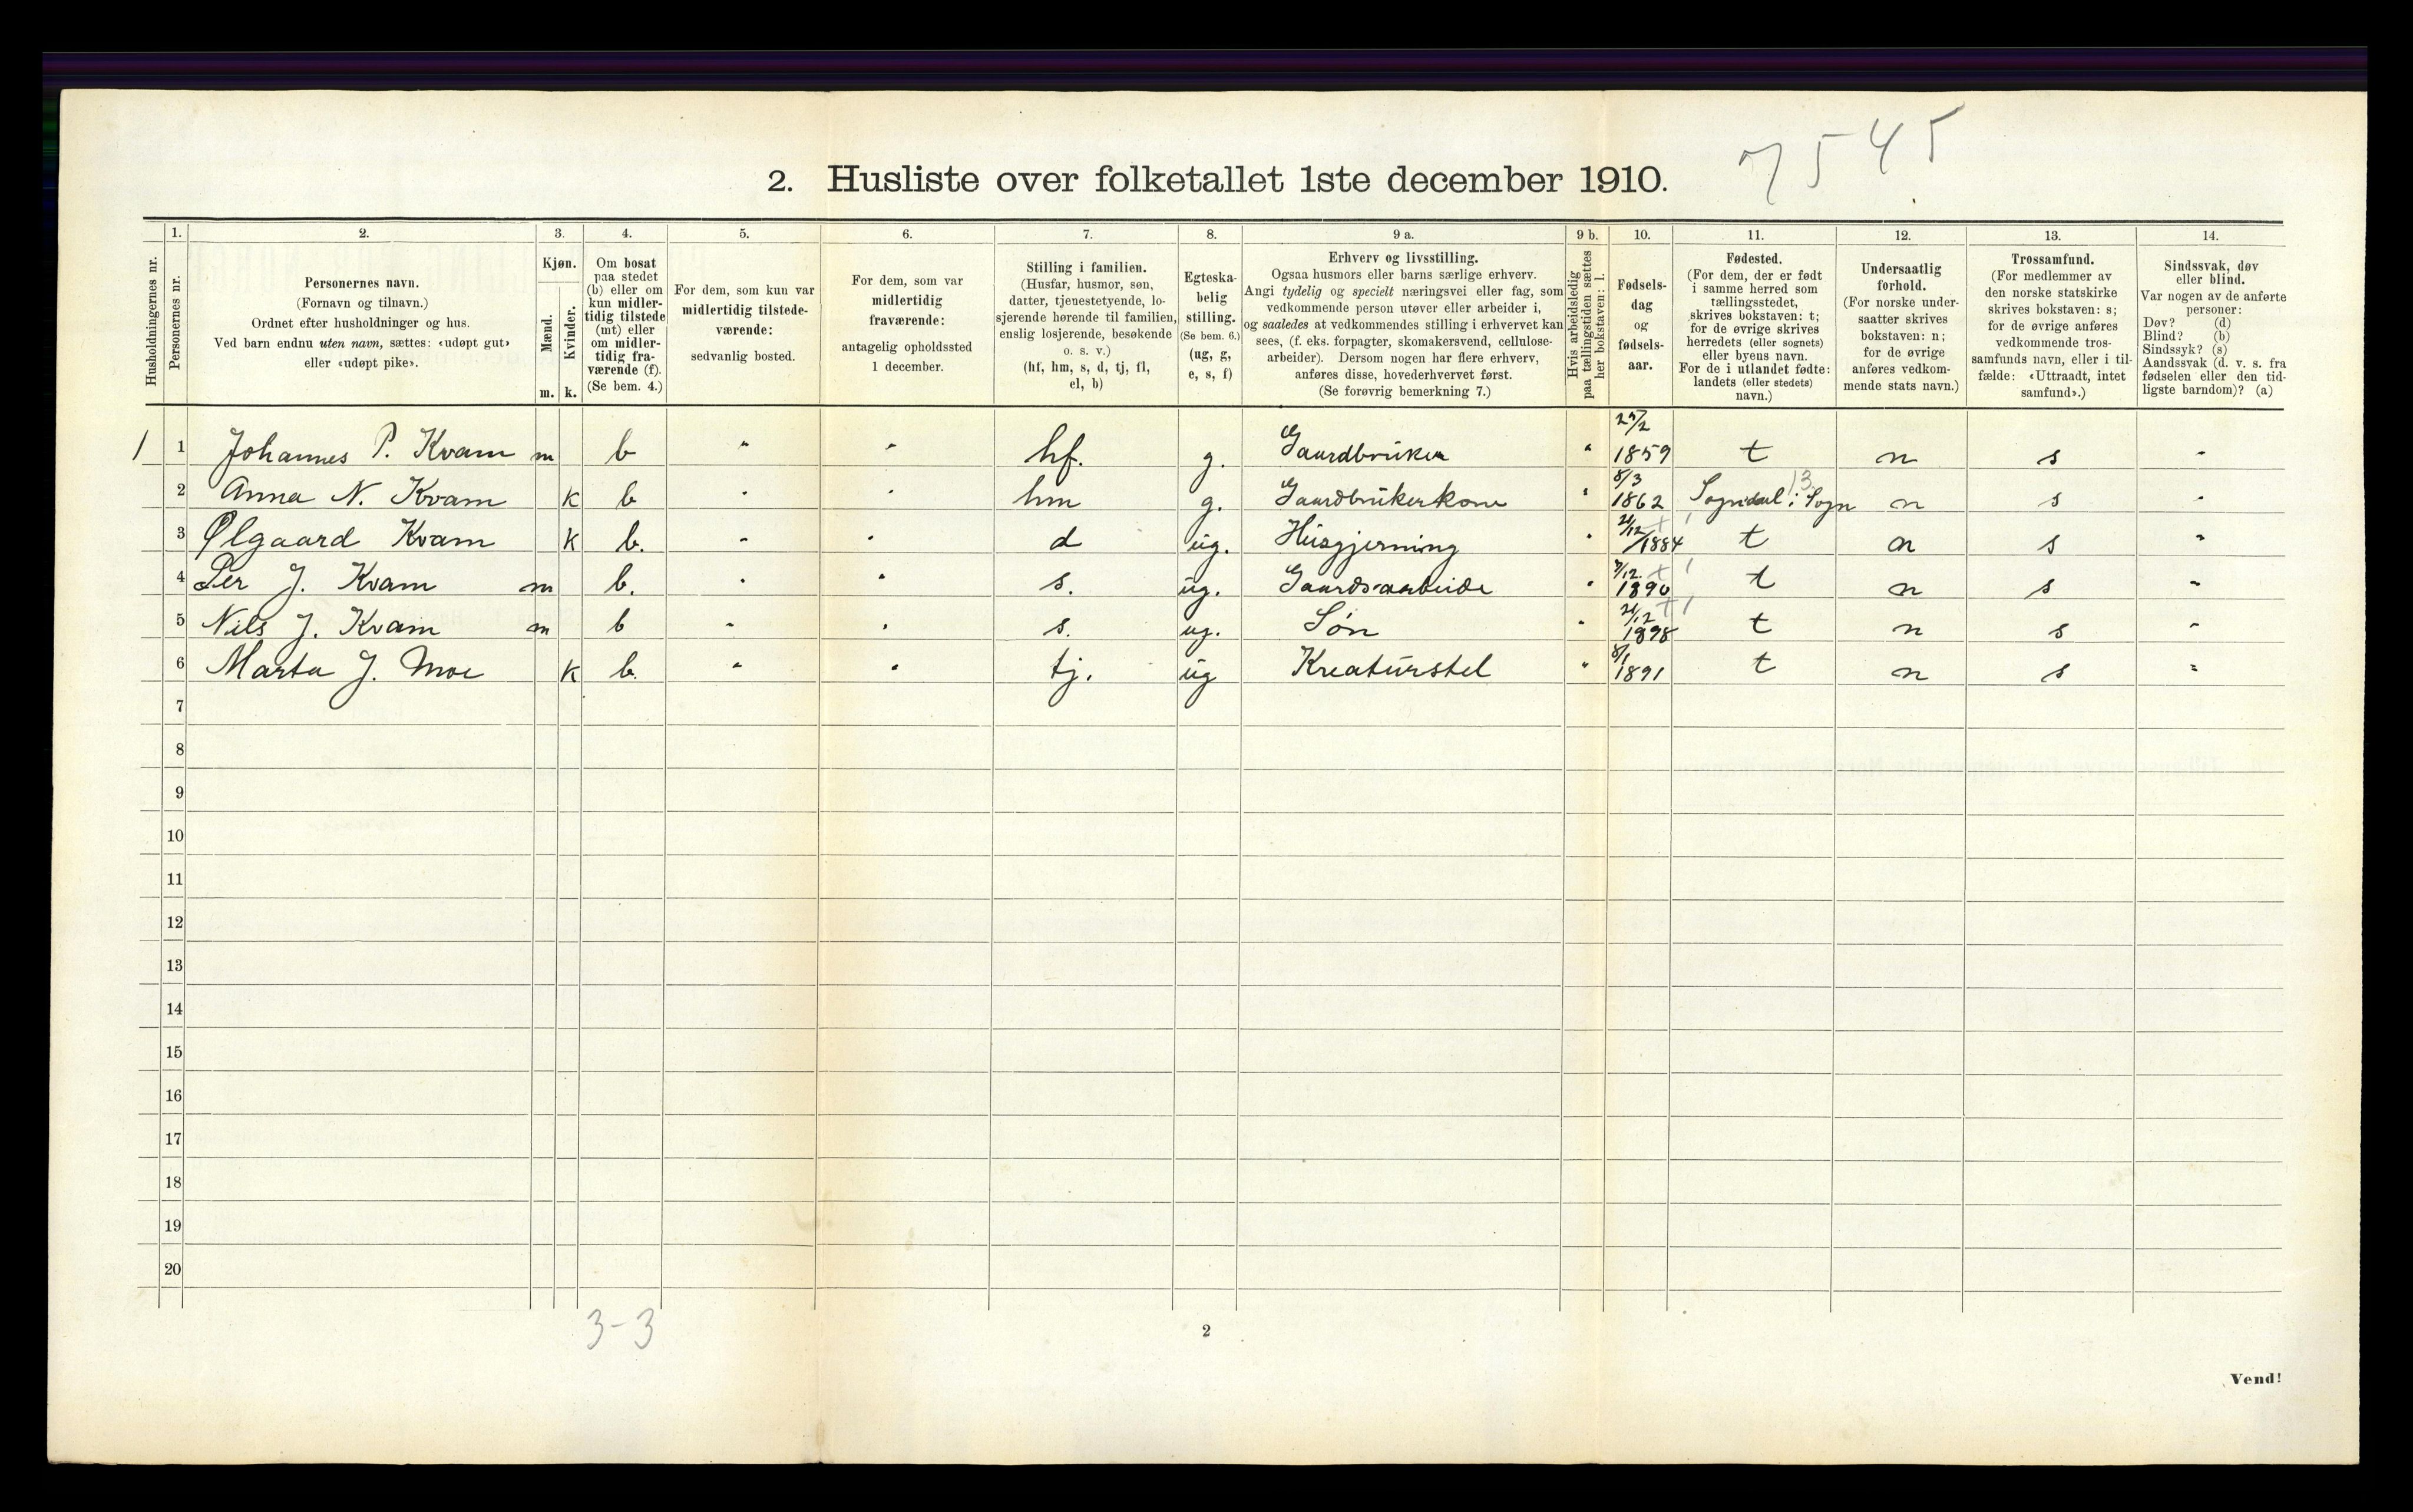 7545
2. Husliste over folketallet 1ste december 1910.
Husholdningernes nr.
1. Personernes nr.
2. Personernes navn.
(Fornavn og tilnavn.)
Ordnet efter husholdninger og hus.
Ved barn endnu uten navn, sættes: «udøpt gut»
eller «udøpt pike».
3. Kjøn.
Mænd. m.
Kvinder. k.
4. Om bosat
paa stedet
(b) eller om
kun midler-
tidig tilstede
(mt) eller
om midler-
tidig fra-
værende (f).
(Se bem. 4.)
5. For dem, som kun var
midlertidig tilstede-
værende:
sedvanlig bosted.
6. For dem, som var
midlertidig
fraværende:
antagelig opholdssted
1 december.
7. Stilling i familien.
(Husfar, husmor, søn,
datter, tjenestetyende, lo-
sjerende hørende til familien,
enslig losjerende, besøkende
o. s. v.)
(hf, hm, s, d, tj, fl,
el, b)
8. Egteska-
belig
stilling.
(Se bem. 6.)
(ug, g,
e, s, f)
9 a. Erhverv og livsstilling.
Ogsaa husmors eller barns særlige erhverv.
Angi tydelig og specielt næringsvei eller fag, som
vedkommende person utøver eller arbeider i,
og saaledes at vedkommendes stilling i erhvervet kan
sees, (f. eks. forpagter, skomakersvend, cellulose-
arbeider). Dersom nogen har flere erhverv,
anføres disse, hovederhvervet først.
(Se forøvrig bemerkning 7.)
9 b. Hvis arbeidsledig
paa tællingstiden sættes
her bokstaven: l.
10. Fødsels-
dag
og
fødsels-
aar.
11. Fødested.
(For dem, der er født
i samme herred som
tællingsstedet,
skrives bokstaven: t;
for de øvrige skrives
herredets (eller sognets)
eller byens navn.
For de i utlandet fødte:
landets (eller stedets)
navn.)
12. Undersaatlig
forhold.
(For norske under-
saatter skrives
bokstaven: n;
for de øvrige
anføres vedkom-
mende stats navn.)
13. Trossamfund.
(For medlemmer av
den norske statskirke
skrives bokstaven: s;
for de øvrige anføres
vedkommende tros-
samfunds navn, eller i til-
fælde: «Uttraadt, intet
samfund».)
14. Sindssvak, døv
eller blind.
Var nogen av de anførte
personer:
Døv? (d)
Blind? (b)
Sindssyk? (s)
Aandssvak (d. v. s. fra
fødselen eller den tid-
ligste barndom)? (a)
1 1 Johannes P. Kvam m b " " hf. g. Gaardbruker " 1859 t n s "
2 Anna N. Kvam k b " " hm g. Gaardbrukerkone " 8/3 1862 Sogndal i Sogn 13 n s "
3 Ølgaard Kvam k b. " " d ug. Husgjerning " 1884 t n s "
4 Per J. Kvam m b. " " s. ug. Gaardsarbeide " 1890 t n s "
5 Nils J. Kvam m b " " s. ug. Søn " 1898 t n s "
6 Marta J. Moe k b. " " tj. ug Kreaturstel " 8/1 1891 t n s "
7
8
9
10
11
12
13
14
15
16
17
18
19
20
3-3
2
Vend!